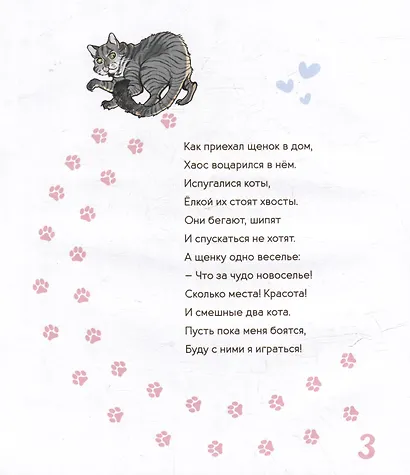 Как приехал щенок в дом,
Хаос воцарился в нём.
Испугалися коты,
Ёлкой их стоят хвосты.
Они бегают, шипят
И спускаться не хотят.
А щенку одно веселье:
– Что за чудо новоселье!
Сколько места! Красота!
И смешные два кота.
Пусть пока меня боятся,
Буду с ними я играться!
3